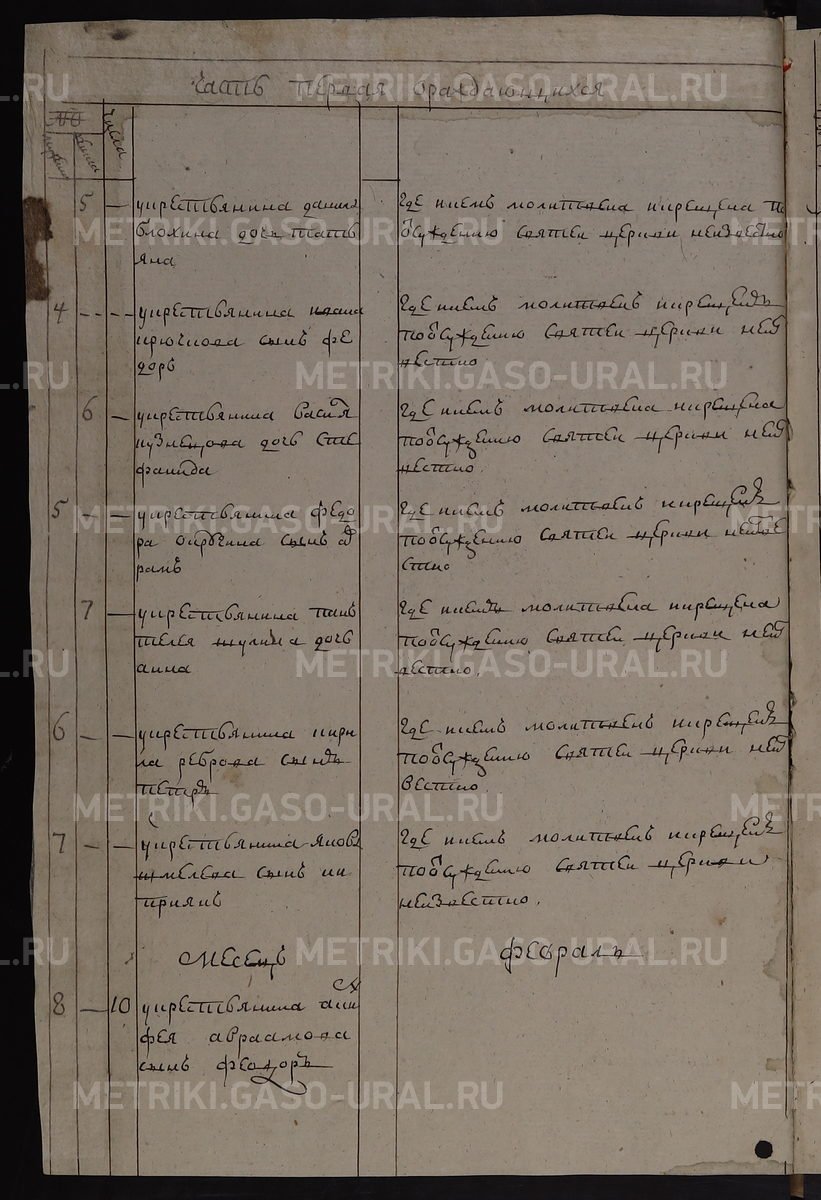 Часть первая ораждающихся
№
числа
5 — укрестьянина данила
блохина дочь тать
яна
где икемъ молитвена икрещена по
обсуждению святеи церкви неизвестно
4 - - - - укрестьянина
крючкова сынъ фе
доръ
где икемъ молитвенъ икрещенъ
пообсуждению святеи церкви неиз
вестно
6 — укрестьянина васил
кузнецова дочь сте
фанида
где икемъ молитвена икрещена
пообсуждению святеи церкви неиз
вестно.
5 - - укрестьянина федо
ра сынъ
рамъ
где икемъ молитвенъ икрещенъ
пообсуждению святеи церкви неизве
стно
7 — укрестьянина пань
телея шулина дочь
анна
где икемъ молитвена икрещена
пообсуждению святеи церкви неиз
вестно.
6 - - укрестьянина кири
ла реброва сынъ
петръ
где икемъ молитвенъ икрещенъ
пообсуждению святеи церкви неиз
вестно.
7 - - укрестьянина якова
шмелева сынъ ки
приянъ
где икемъ молитвенъ икрещенъ
пообсуждению святеи церкви
неизвестно.
месецъ февраль
8 — 10 укрестьянина
фея авраамова
сынъ феодоръ
METRIKI.GASO-URAL.RU